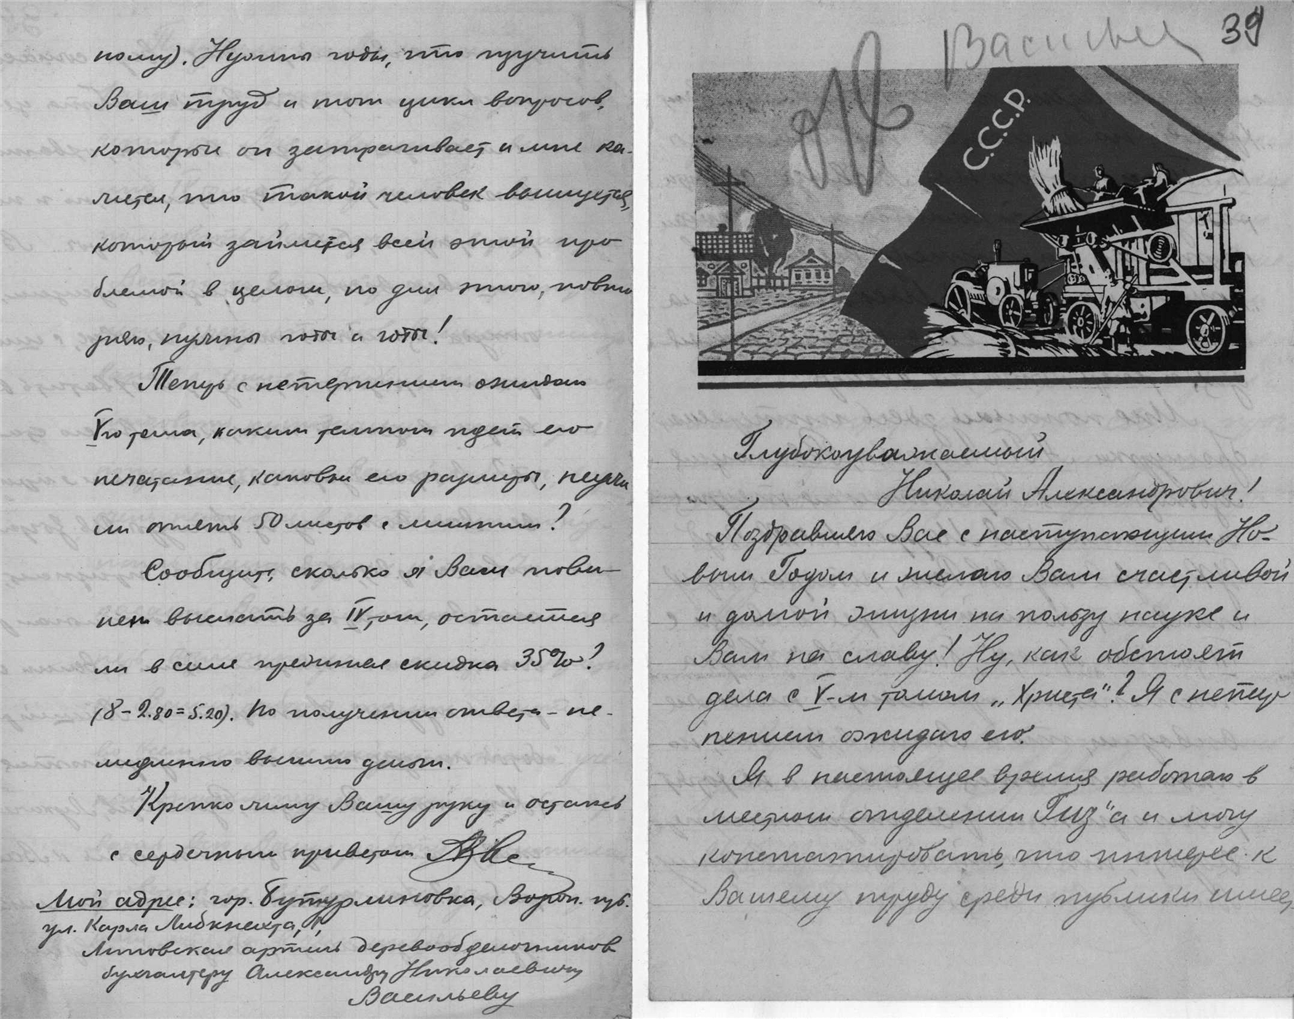 ному). Нужны годы, что изучить
Ваш труд и тот цикл вопросов,
которые он затрагивает и мне ка-
жется, что такой человек выищется,
который займется всей этой про
блемой в целом, но для этого, повто
ряю, нужны годы и годы!
Теперь с нетерпением ожидаю
V го тома, каким темпом идет его
печатание, каковы его размеры, неужели
ли опять 50 листов с лишним?
Сообщите, сколько я Вам пови-
нен выслать за IV том, остается
ли в силе прежняя скидка 35%?
(8 - 2.80 = 5.20). По получении ответа - не-
медленно вышлю деньги.
Крепко жму Вашу руку и остаюсь
с сердечным приветом
Мой адрес: гор. Бутурлиновка, Ворон. губ.
ул. Карла Либкнехта,
артель деревообделочников
бухгалтеру Александру Николаевичу
Васильеву
Васильев
39
С.С.С.Р.
Глубокоуважаемый
Николай Александрович!
Поздравляю Вас с наступающим Но-
вым Годом и желаю Вам счастливой
и долгой жизни на пользу науке и
Вам на славу! Ну, как обстоят
дела с V-м томом „Христа"? Я с нетер
пением ожидаю его.
Я в настоящее время работаю в
местном отделении Гиз"а и могу
констатировать, что интерес к
Вашему труду среди публики имеет